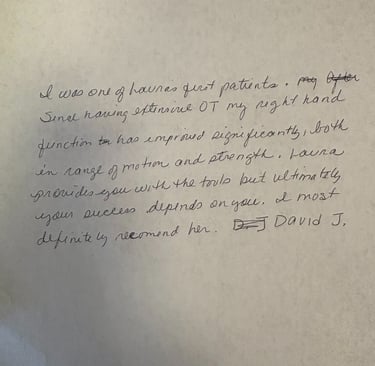 I was one of Lauras first patients. my After
Since having extensive OT my right hand
function has improved significantly, both
in range of motion and strength. Laura
provides you with the tools but ultimately
your success depends on you. I most
definitely recomend her. D=J David J.